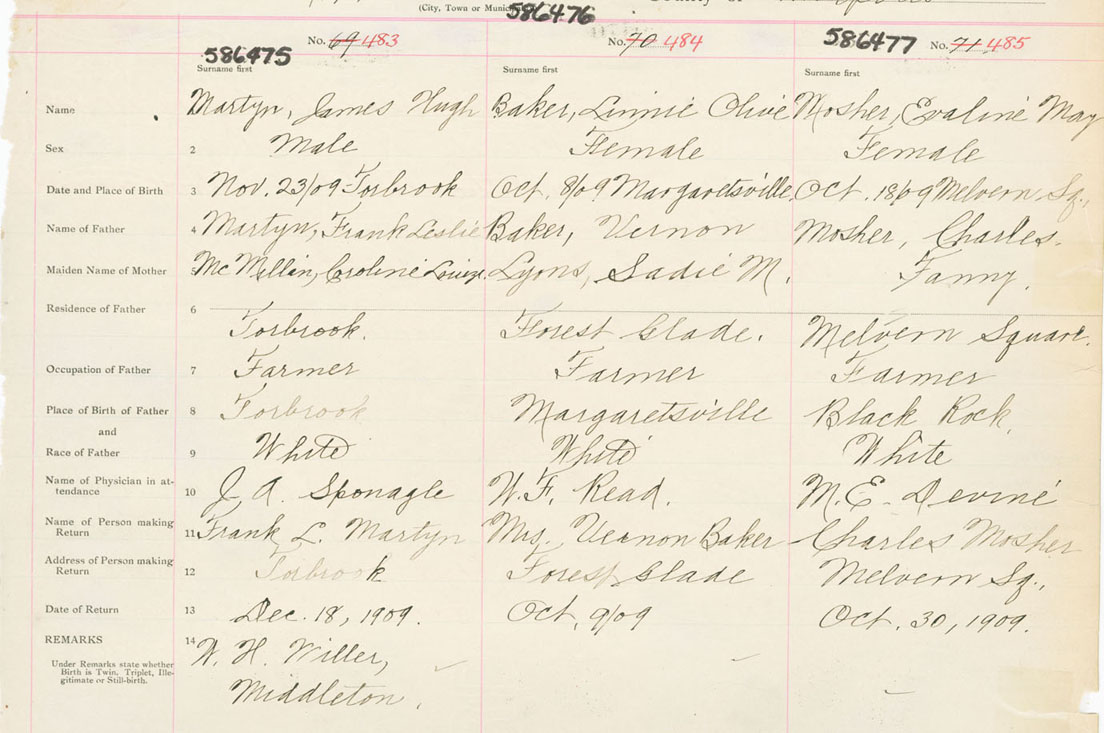 (City, Town or Munici
586476
No. 69 483
No. 70 484
586477 No. 71 485
586475
Surname first
Surname first
Surname first
Name Martyn, James Hugh Baker, Linnie Olive Mosher, Evaline May
Sex 2 Male Female Female
Date and Place of Birth 3 Nov. 23/09 Torbrook Oct. 8/09 Margaretsville Oct. 18/09 Melvern Sq.,
Name of Father 4 Martyn, Frank Leslie Baker, Vernon Mosher, Charles.
Maiden Name of Mother McMillin, Croline Lyons, Sadie M. Fanny.
Residence of Father 6
Torbrook. Forest Glade. Melvern Square.
Occupation of Father 7 Farmer Farmer Farmer
Place of Birth of Father 8 Torbrook Margaretsville Black Rock,
and
Race of Father 9 White White White
Name of Physician in at-
tendance 10 J. A. Sponagle W. F. Read. M. E. Devine
Name of Person making
Return 11 Frank L. Martyn Mrs. Vernon Baker Charles Mosher
Address of Person making
Return 12 Torbrook Forest Glade Melvern Sq.,
Date of Return 13 Dec. 18, 1909. Oct, 9/09 Oct. 30, 1909.
REMARKS 14 W. H. Willer,
Under Remarks state whether
Birth is Twin, Triplet, Ille-
gitimate or Still-birth.
Middleton.